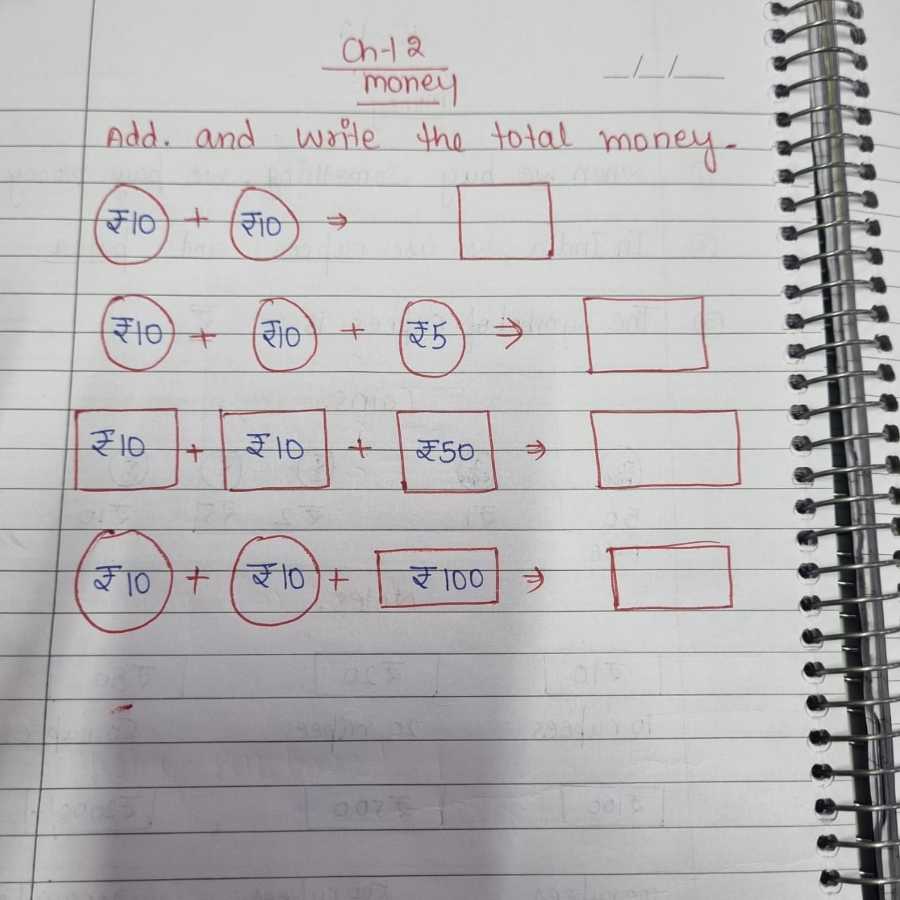 Ch-12
money
Add. and write the total money.
₹10 + ₹10 ⇒
₹10 + ₹10 + ₹5 ⇒
₹10 + ₹10 + ₹50 ⇒
₹10 + ₹10 + ₹100 ⇒